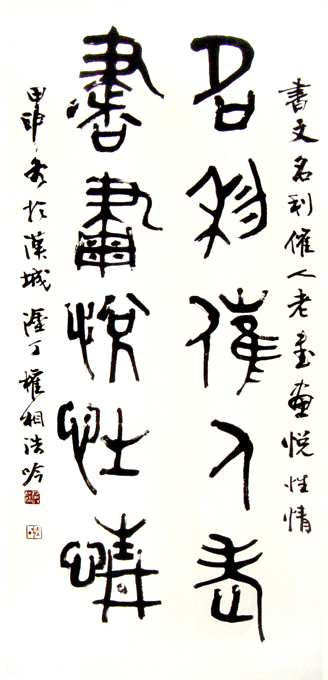 書文名利催人老書畫悅性情
名利催人老
書畫悅性情
甲申於漢城塗丁權相浩吟